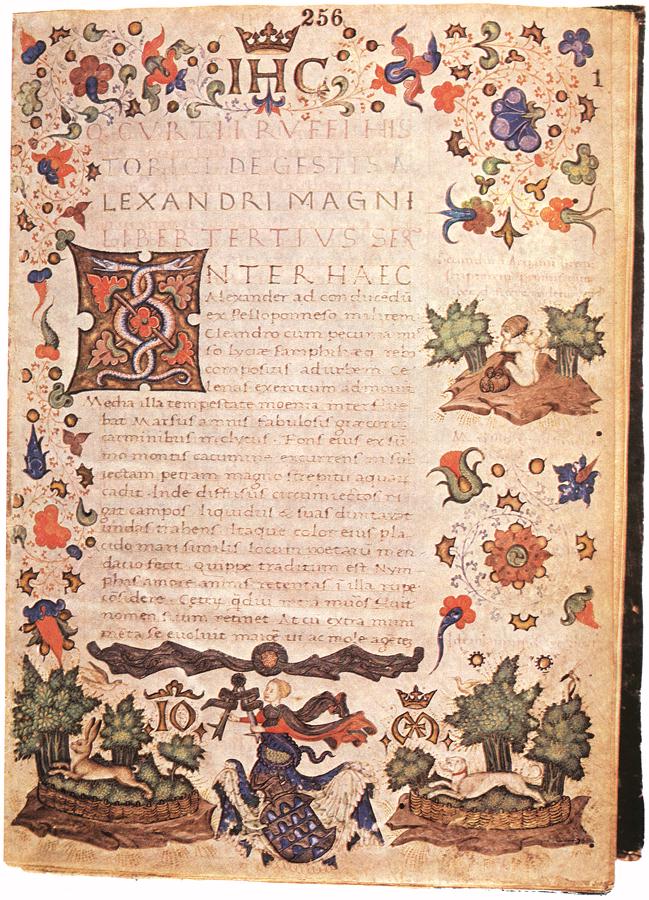 256
IHC
1
Q CVRTII RVFFI HIS
TORICI DE GESTIS A
LEXANDRI MAGNI
LIBER TERTIVS SER
NTER HAEC
Alexander ad conducedũ
ex Pelloponneso militem
Cleandro cum pecunia
so Lyciæ Pamphiliæq reb
compositis ad urbem Ce
lenas exercitum admouit
Media illa tempestate moenia interflue
bat Marsus amnis fabulosis græcorũ
carminibus inclytus. Fons eius ex sũ
mo montis cacumine excurrens in sub
iectam petram magno strepitu aquarũ
cadit. Inde diffusus circumiectos ri
gat campos liquidus & suas dumtaxat
undas trahens. Itaque color eius pla
cido mari similis locum poetarũ men
dacio fecit. quippe traditum est Nym
phas amore amnis retentas ĩ illa rupe
cõsidere. q̃diu intra muros fluit
nomen suum retinet. At cũ extra muni
menta se euoluit ui ac mole
IO
M